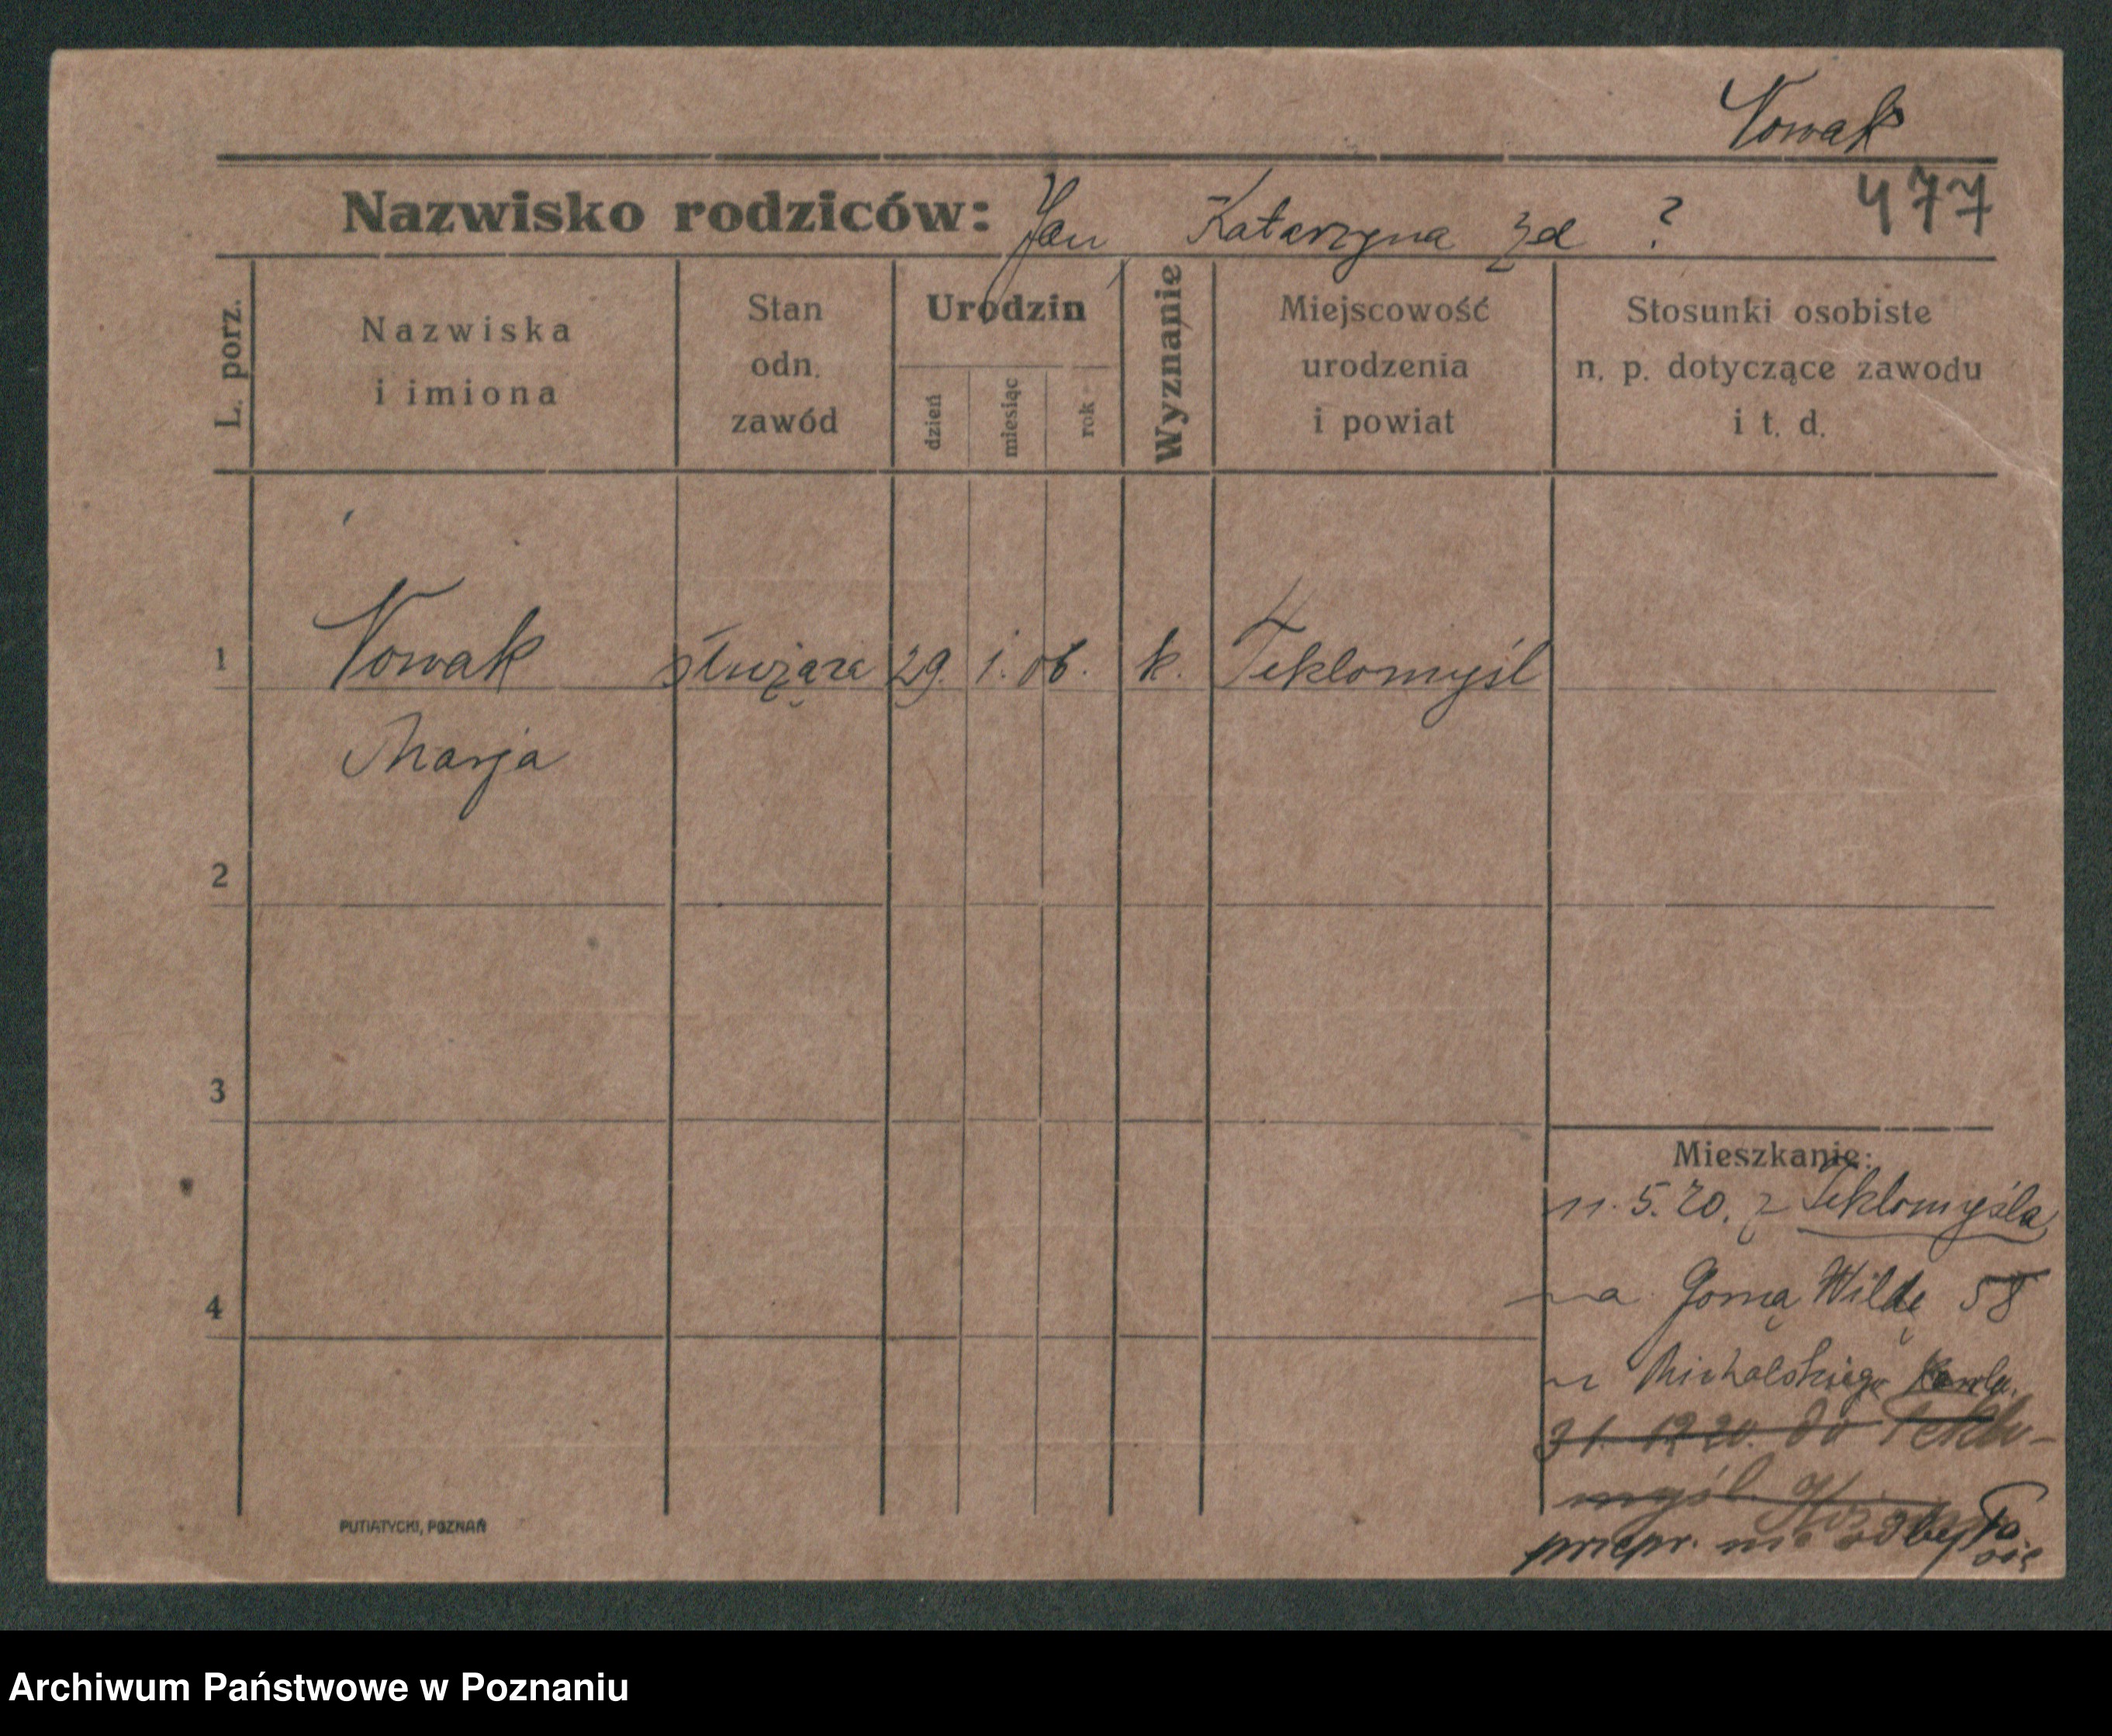 Nowak
477
Nazwisko rodziców: Jan Katarzyna zd ?
L. porz.
Nazwiska
i imiona
Stan
odn.
zawód
Urodzin
dzień
miesiąc
rok
Wyznanie
Miejscowość
urodzenia
i powiat
Stosunki osobiste
n. p. dotyczące zawodu
i t. d.
1 Nowak służąca 29. 1. 06. k. Teklomyśl
Marja
2
3
4
Mieszkanie:
11. 5. 20. z Teklomyśla
na Gorną Wildę 58
u Michalskiego Karola.
31. 12 20. do Teklo-
myśl.
przepr. nie odbyło
się
PUTIATYCKI, POZNAŃ
Archiwum Państwowe w Poznaniu